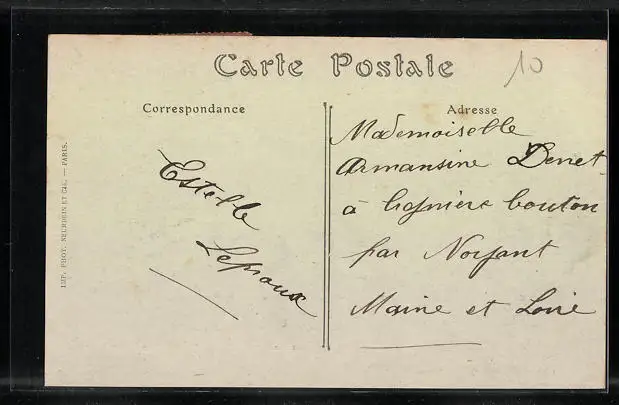 Carte Postale
10
Correspondance
Adresse
Estelle
Leproux
Mademoiselle
Armansine Denet
à ligniere bouton
par Noyant
Maine et Loire
IMP. PHOT. NEURDEIN ET CIE. — PARIS.